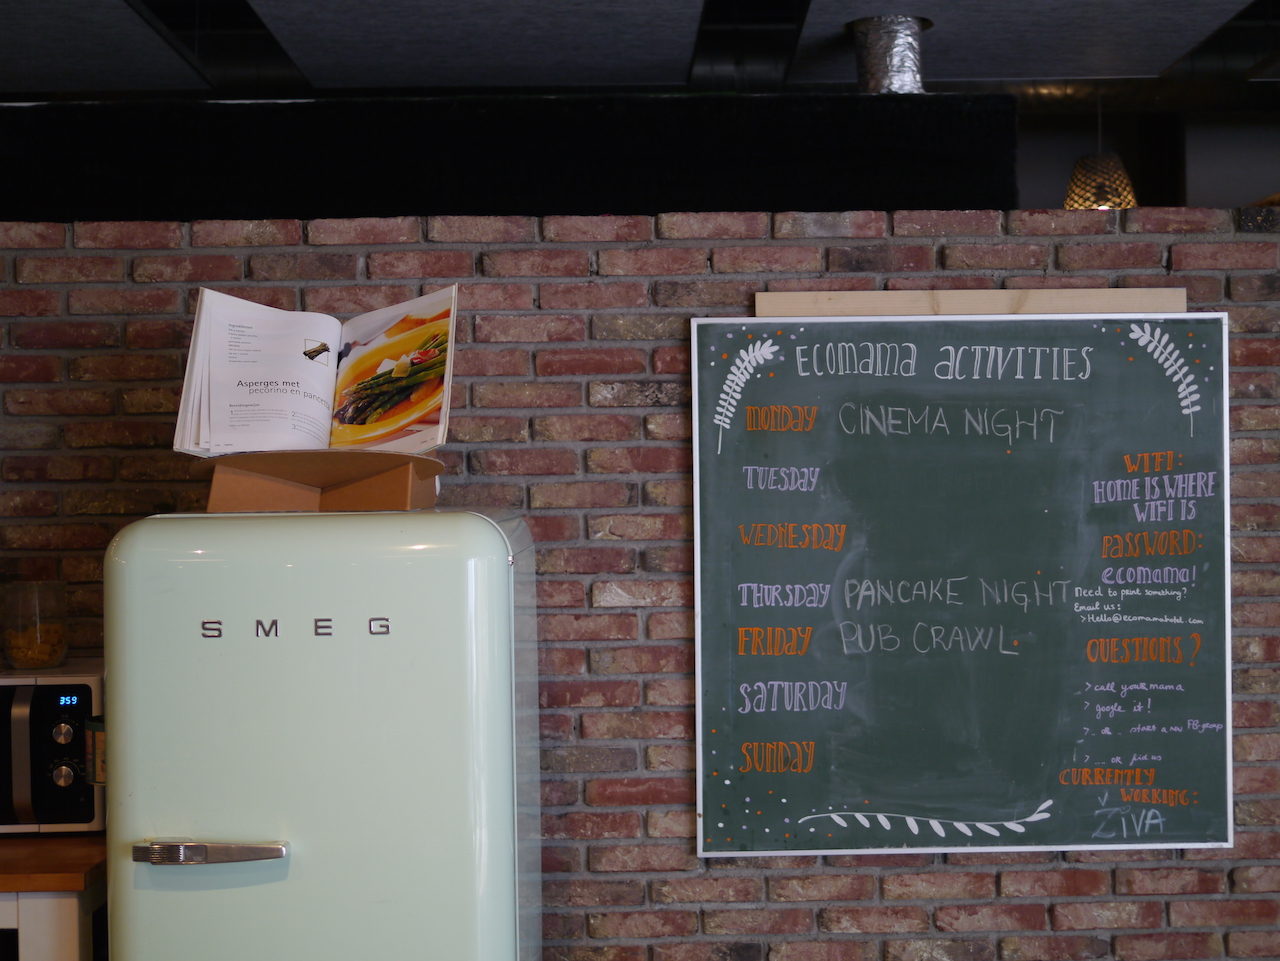 Ingrediënten
Asperges met
pecorino en pancetta
Bereidingswijze
1
2
3
SMEG
359
ECOMAMA ACTIVITIES
MONDAY CINEMA NIGHT
TUESDAY
WEDNESDAY
THURSDAY PANCAKE NIGHT
FRIDAY PUB CRAWL
SATURDAY
SUNDAY
WIFI:
HOME IS WHERE
WIFI IS
PASSWORD:
ecomama!
Need to print something?
Email us:
> Hello@ecomamahotel.com
QUESTIONS?
> call your mama
> google it!
> .. or .. start a new FB-group
> ... or find us
CURRENTLY
WORKING:
ZIVA